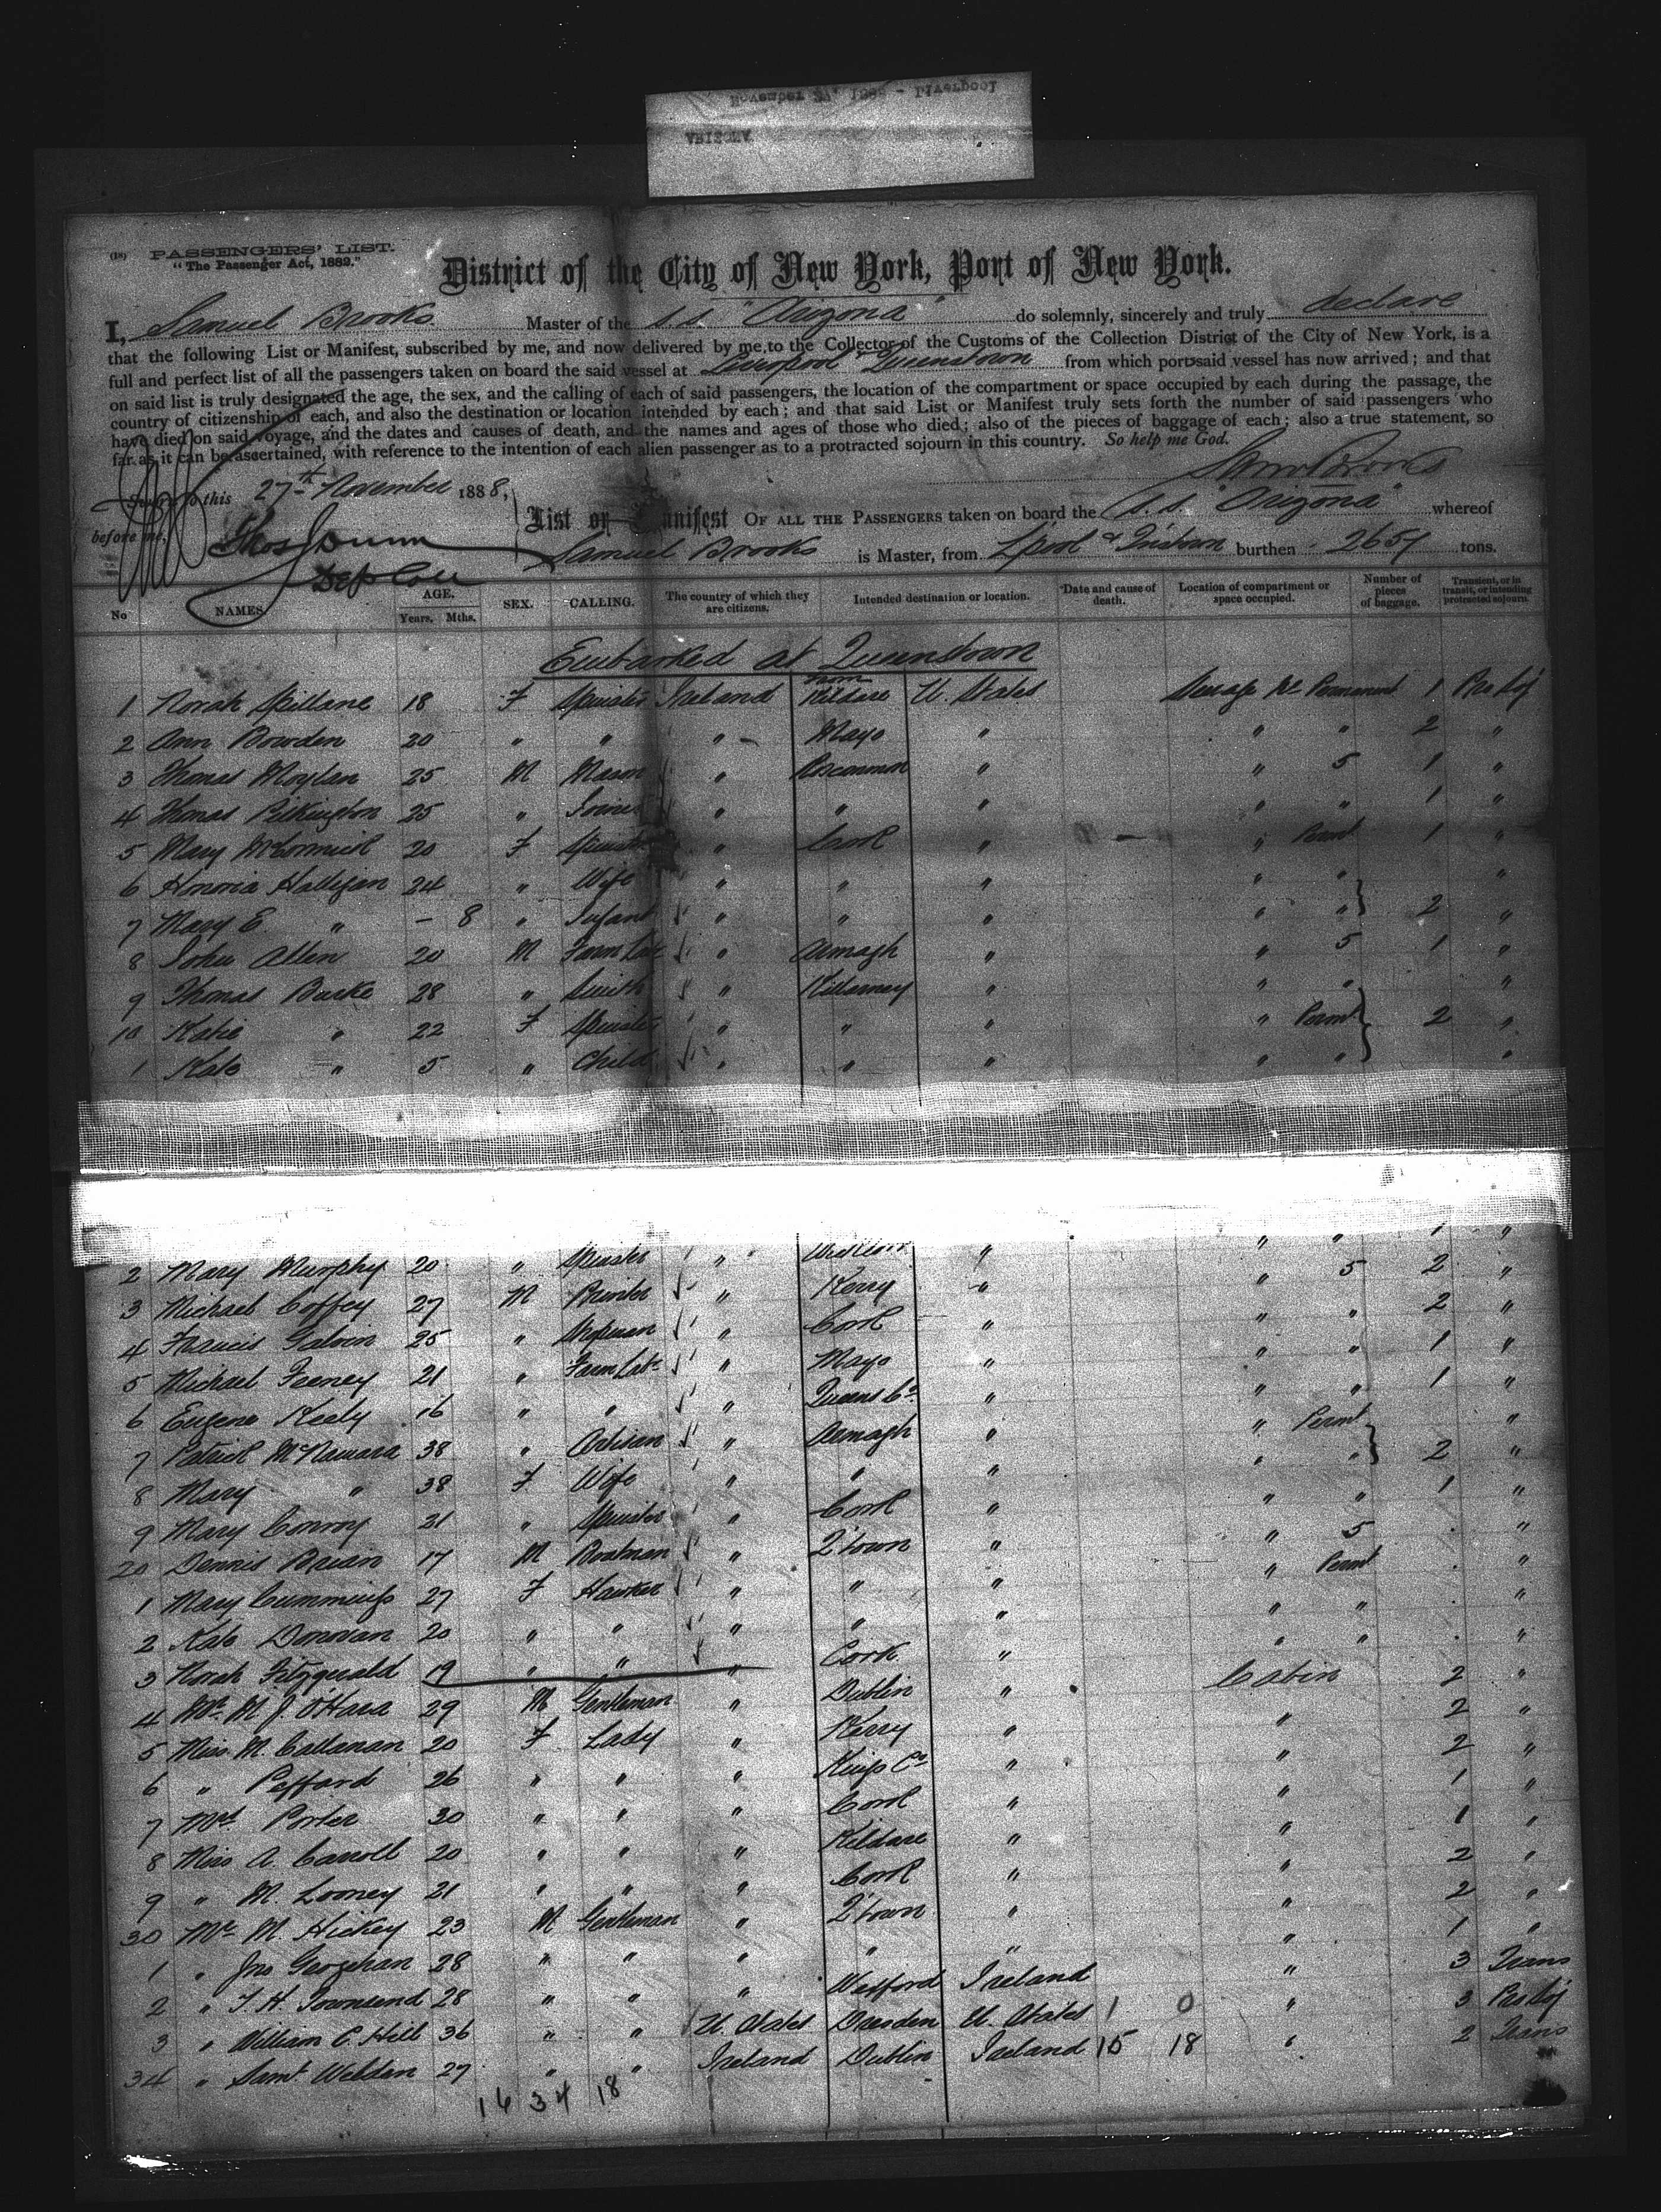 (18) PASSENGERS' LIST.
"The Passenger Act, 1882."
District of the City of New York, Port of New York.
I, Samuel Brooks. Master of the s.s. "Arizona" do solemnly, sincerely and truly declare
that the following List or Manifest, subscribed by me, and now delivered by me, to the Collector of the Customs of the Collection District of the City of New York, is a
full and perfect list of all the passengers taken on board the said vessel at Liverpool & Queenstown from which port said vessel has now arrived; and that
on said list is truly designated the age, the sex, and the calling of each of said passengers, the location of the compartment or space occupied by each during the passage, the
country of citizenship of each, and also the destination or location intended by each; and that said List or Manifest truly sets forth the number of said passengers who
have died on said voyage, and the dates and causes of death, and the names and ages of those who died; also of the pieces of baggage of each; also a true statement, so
far as it can be ascertained, with reference to the intention of each alien passenger as to a protracted sojourn in this country. So help me God.
Saml Brooks
to this 27th November 1888,
before me,
List or Manifest OF ALL THE PASSENGERS taken on board the s.s. "Arizona" whereof
Samuel Brooks is Master, from L'pool & Q'stown burthen 2657 tons.
Dep Coll
No NAMES. AGE. Years. Mths. SEX. CALLING. The country of which they are citizens. Intended destination or location. Date and cause of death. Location of compartment or space occupied. Number of pieces of baggage. Transient, or in transit, or intending protracted sojourn.
Embarked at Queenstown
from
1 Norah Spillane 18 F Spinster Ireland Kildare U. States Steerage Permanent 1 Pro Soj
2 Ann Bowden 20 " " " Mayo " " " 2 "
3 Thomas Moylan 25 M Mason " Roscommon " " 5 1 "
4 Thomas Pilkington 25 " Joiner " " " " " 1 "
5 Mary McCormick 20 F Spinster " Cork " " Permt 1 "
6 Honoria Halligan 24 " Wife " " " " " "
7 Mary E " - 8 " Infant " " " " " 2 "
8 John Allen 20 M Farm Lab " Armagh " " 5 1 "
9 Thomas Burke 28 " Smith " Killarney " " " "
10 Katie " 22 F Spinster " " " " Permt 2 "
1 Kate " 5 " Child " " " " " "
" " 1 "
2 Mary Murphy 20 " Spinster " " " 5 2 "
3 Michael Coffey 27 M Printer " Kerry " " " 2 "
4 Francis Galvin 25 " Shopman " Cork " " " 1 "
5 Michael Feeney 21 " Farm Labr " Mayo " " " 1 "
6 Eugene Keely 16 " " " Queens Co. " " Permt "
7 Patrick McNamara 38 " Artisan " Armagh " " " 2 "
8 Mary " 38 F Wife " " " " " 1 "
9 Mary Conroy 21 " Spinster " Cork " " 5 "
20 Dennis Brian 17 M Boatman " Q'town " " Permt "
1 Mary Cummings 27 F Hawker " " " " " "
2 Kate Donovan 20 " " " " " " " "
3 Norah Fitzgerald 19 " " " Cork " Cabin 2 "
4 Mr. M. J. O'Hara 29 M Gentleman " Dublin " " 2 "
5 Miss M. Callanan 20 F Lady " Kerry " " 2 "
6 " Peffard 26 " " " Kings Co " " 1 "
7 Mrs. Porter 30 " " " Cork " " 1 "
8 Miss A. Carroll 20 " " " Kildare " " 2 "
9 " M. Looney 21 " " " Cork " " 2 "
30 Mr M. Hickey 23 M Gentleman " Q'town " " 1 "
1 " Jno Geoghan 28 " " " " " " 3 Trans
2 " T. H. Townsend 28 " " " Wexford Ireland " 3 Pro Soj
3 " William C. Hill 36 " " U. States Dresden U. States 1 0 " 2 Trans
34 " Saml. Weldon 27 " " Ireland Dublin Ireland 15 18 "
16 34 18